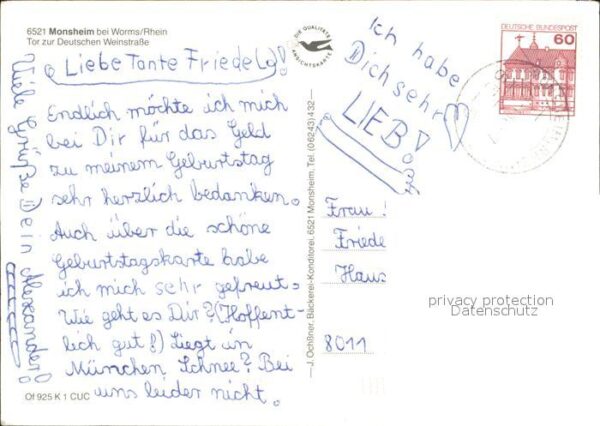 6521 Monsheim bei Worms/Rhein
Tor zur Deutschen Weinstraße
Liebe Tante Friedel!
Endlich möchte ich mich
bei Dir für das Geld
zu meinem Geburtstag
sehr herzlich bedanken.
Auch über die schöne
Geburtstagskarte habe
ich mich sehr gefreut.
Wie geht es Dir? (Hoffent-
lich gut!) Liegt in
München Schnee? Bei
uns leider nicht.
Viele Grüße Dein Alexander!
Of 925 K 1 CUC
DIE QUALITÄTS
ANSICHTSKARTE
J. Ochßner, Bäckerei-Konditorei, 6521 Monsheim, Tel. (06243) 4 32
Ich habe
Dich sehr
LIEB!
DEUTSCHE BUNDESPOST
60
Frau
Friede
Haus
8011
privacy protection
Datenschutz